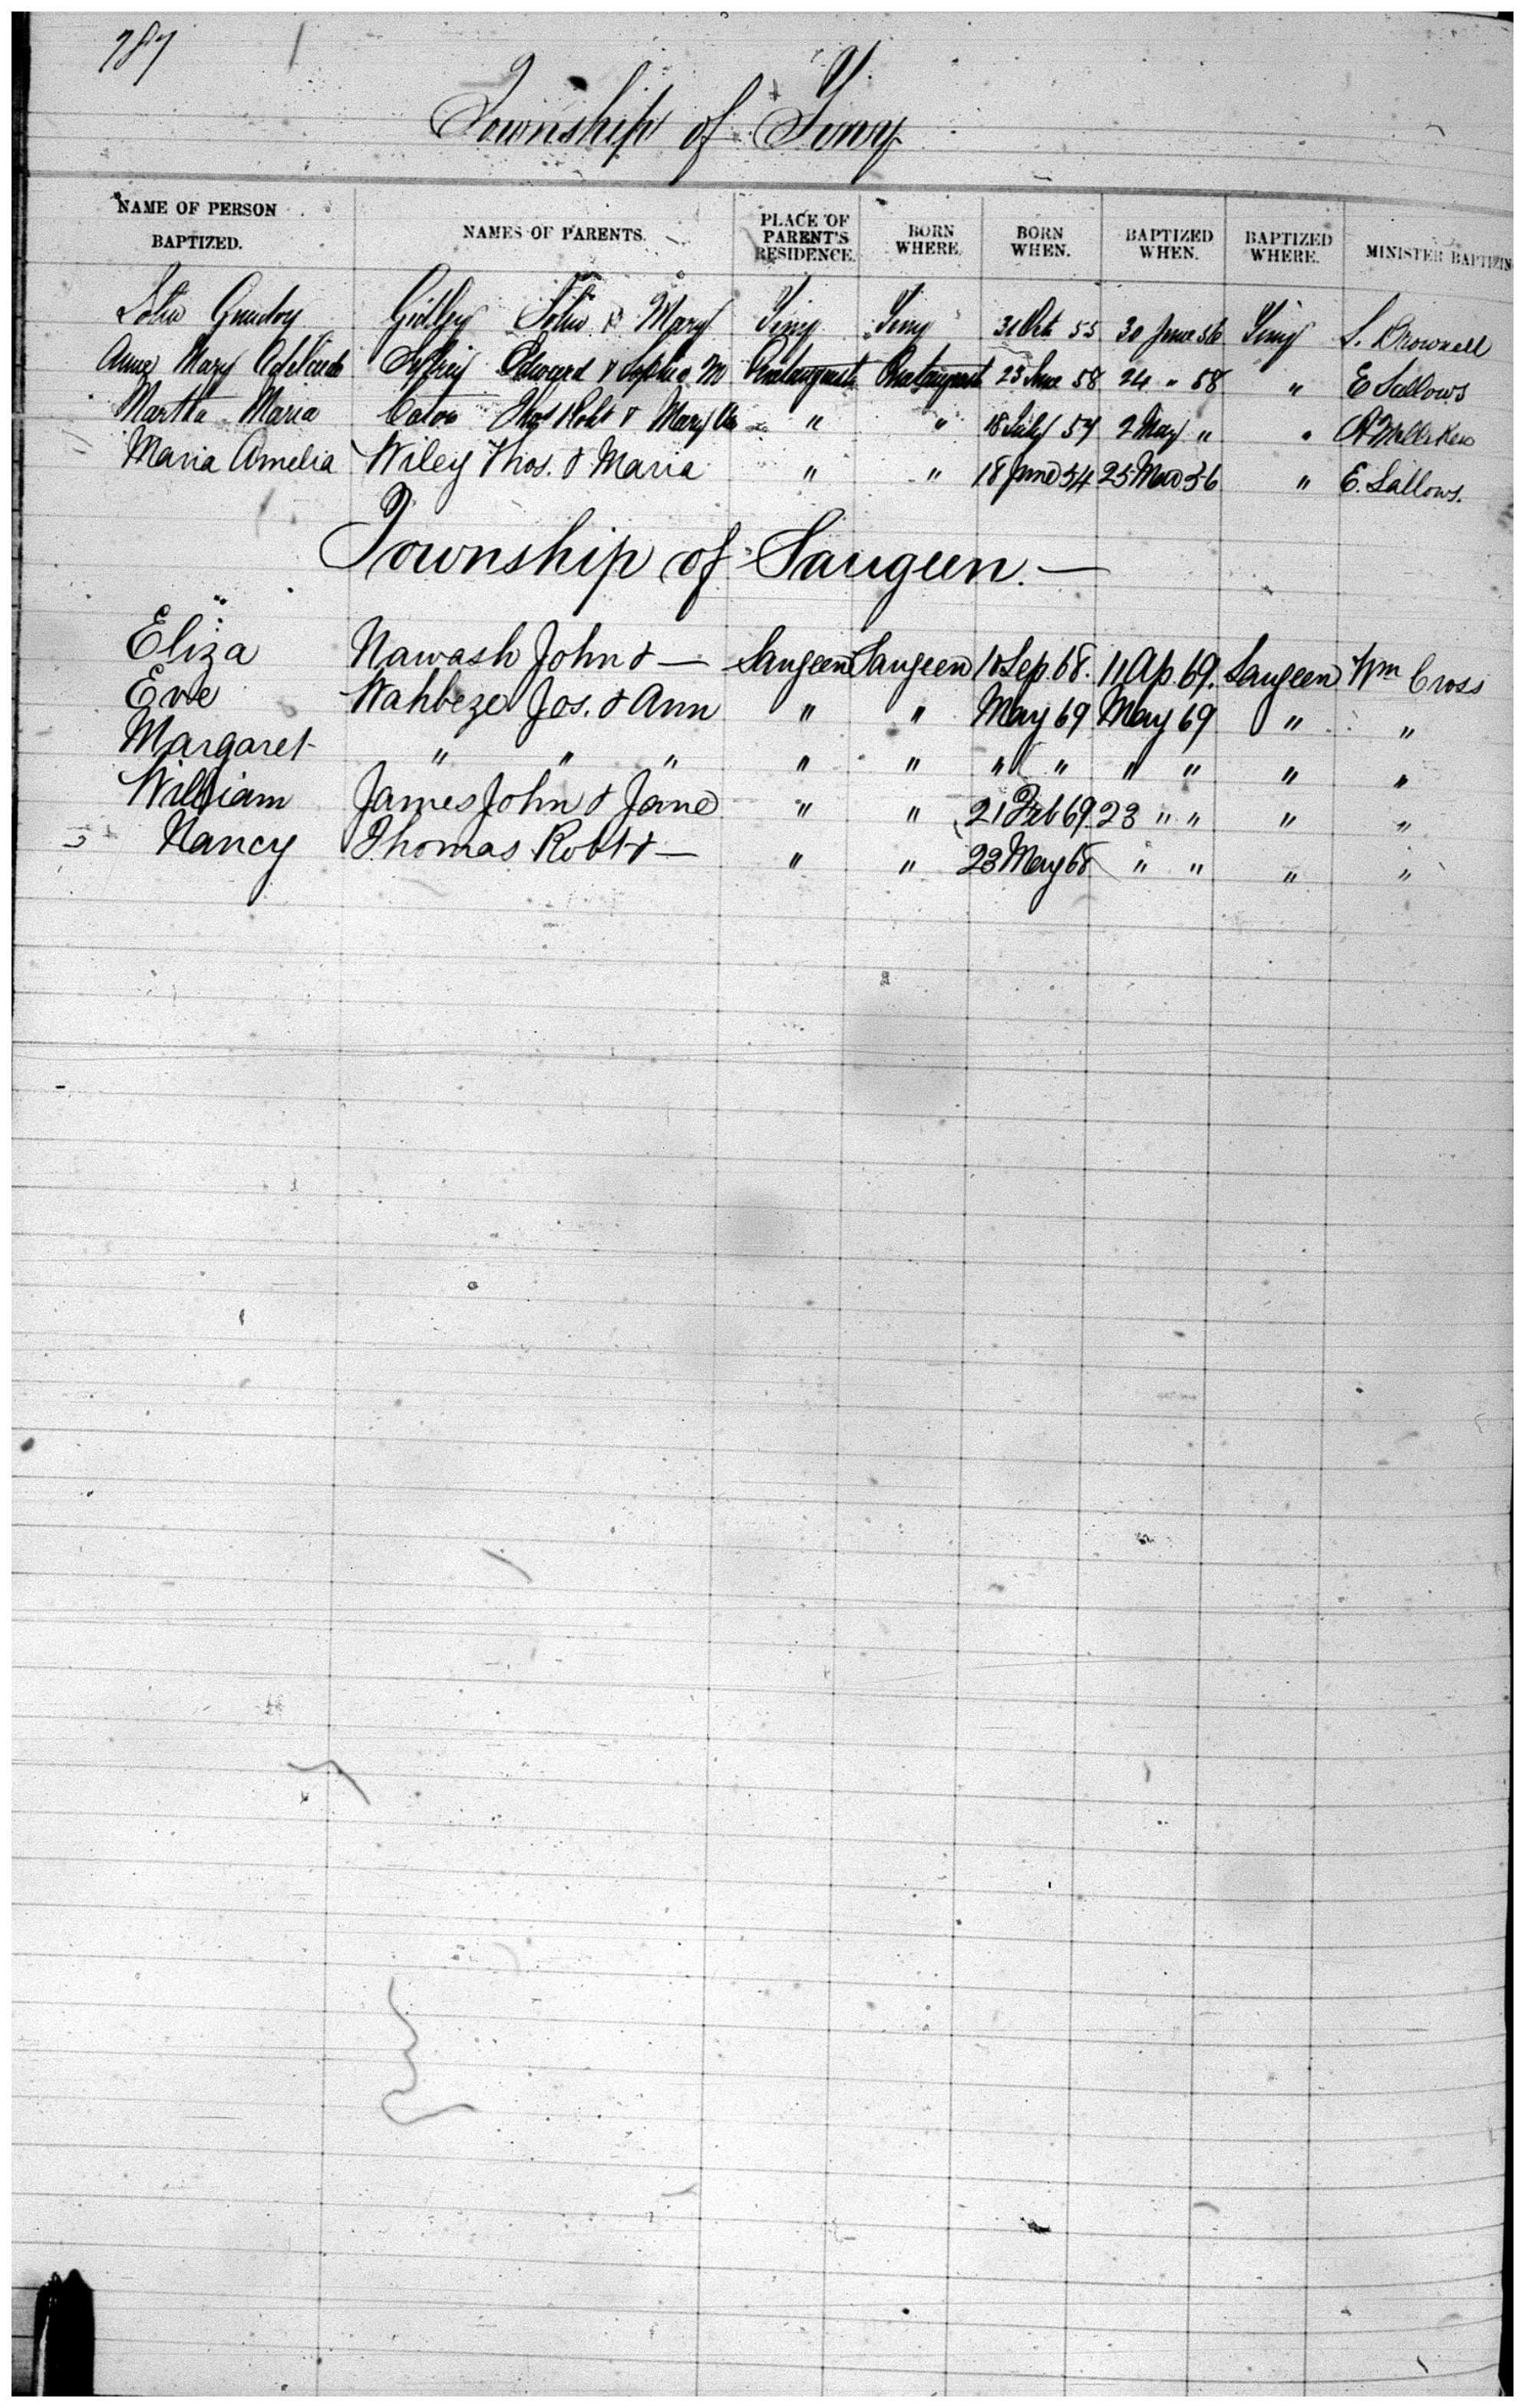 787
Township of Tiny
NAME OF PERSON BAPTIZED. NAMES OF PARENTS. PLACE OF PARENT'S RESIDENCE. BORN WHERE. BORN WHEN. BAPTIZED WHEN. BAPTIZED WHERE. MINISTER BAPTIZIN
John Gidley John & Mary Tiny Tiny 31 Oct 55 30 June 56 Tiny S. Brownell
Anne Mary Jeffrey Edward & Sophia M 23 June 58 24 " 58 " E Sallows
Martha Maria Caton Thos Robt & Mary An " " 18 July 57 2 May " "
Maria Amelia Wiley Thos. & Maria " " 18 June 54 25 Mar 56 " E. Sallows.
Township of Saugeen. —
Eliza Nawash John & — Saugeen Saugeen 10 Sep 68. 11 Ap 69. Saugeen Wm Cross
Eve Wahbeze Jos. & Ann " " May 69 May 69 " "
Margaret " " " " " " " " " " "
William James John & Jane " " 21 Feb 69. 23 " " " "
Nancy Thomas Robt & — " " 23 May 68 " " " "